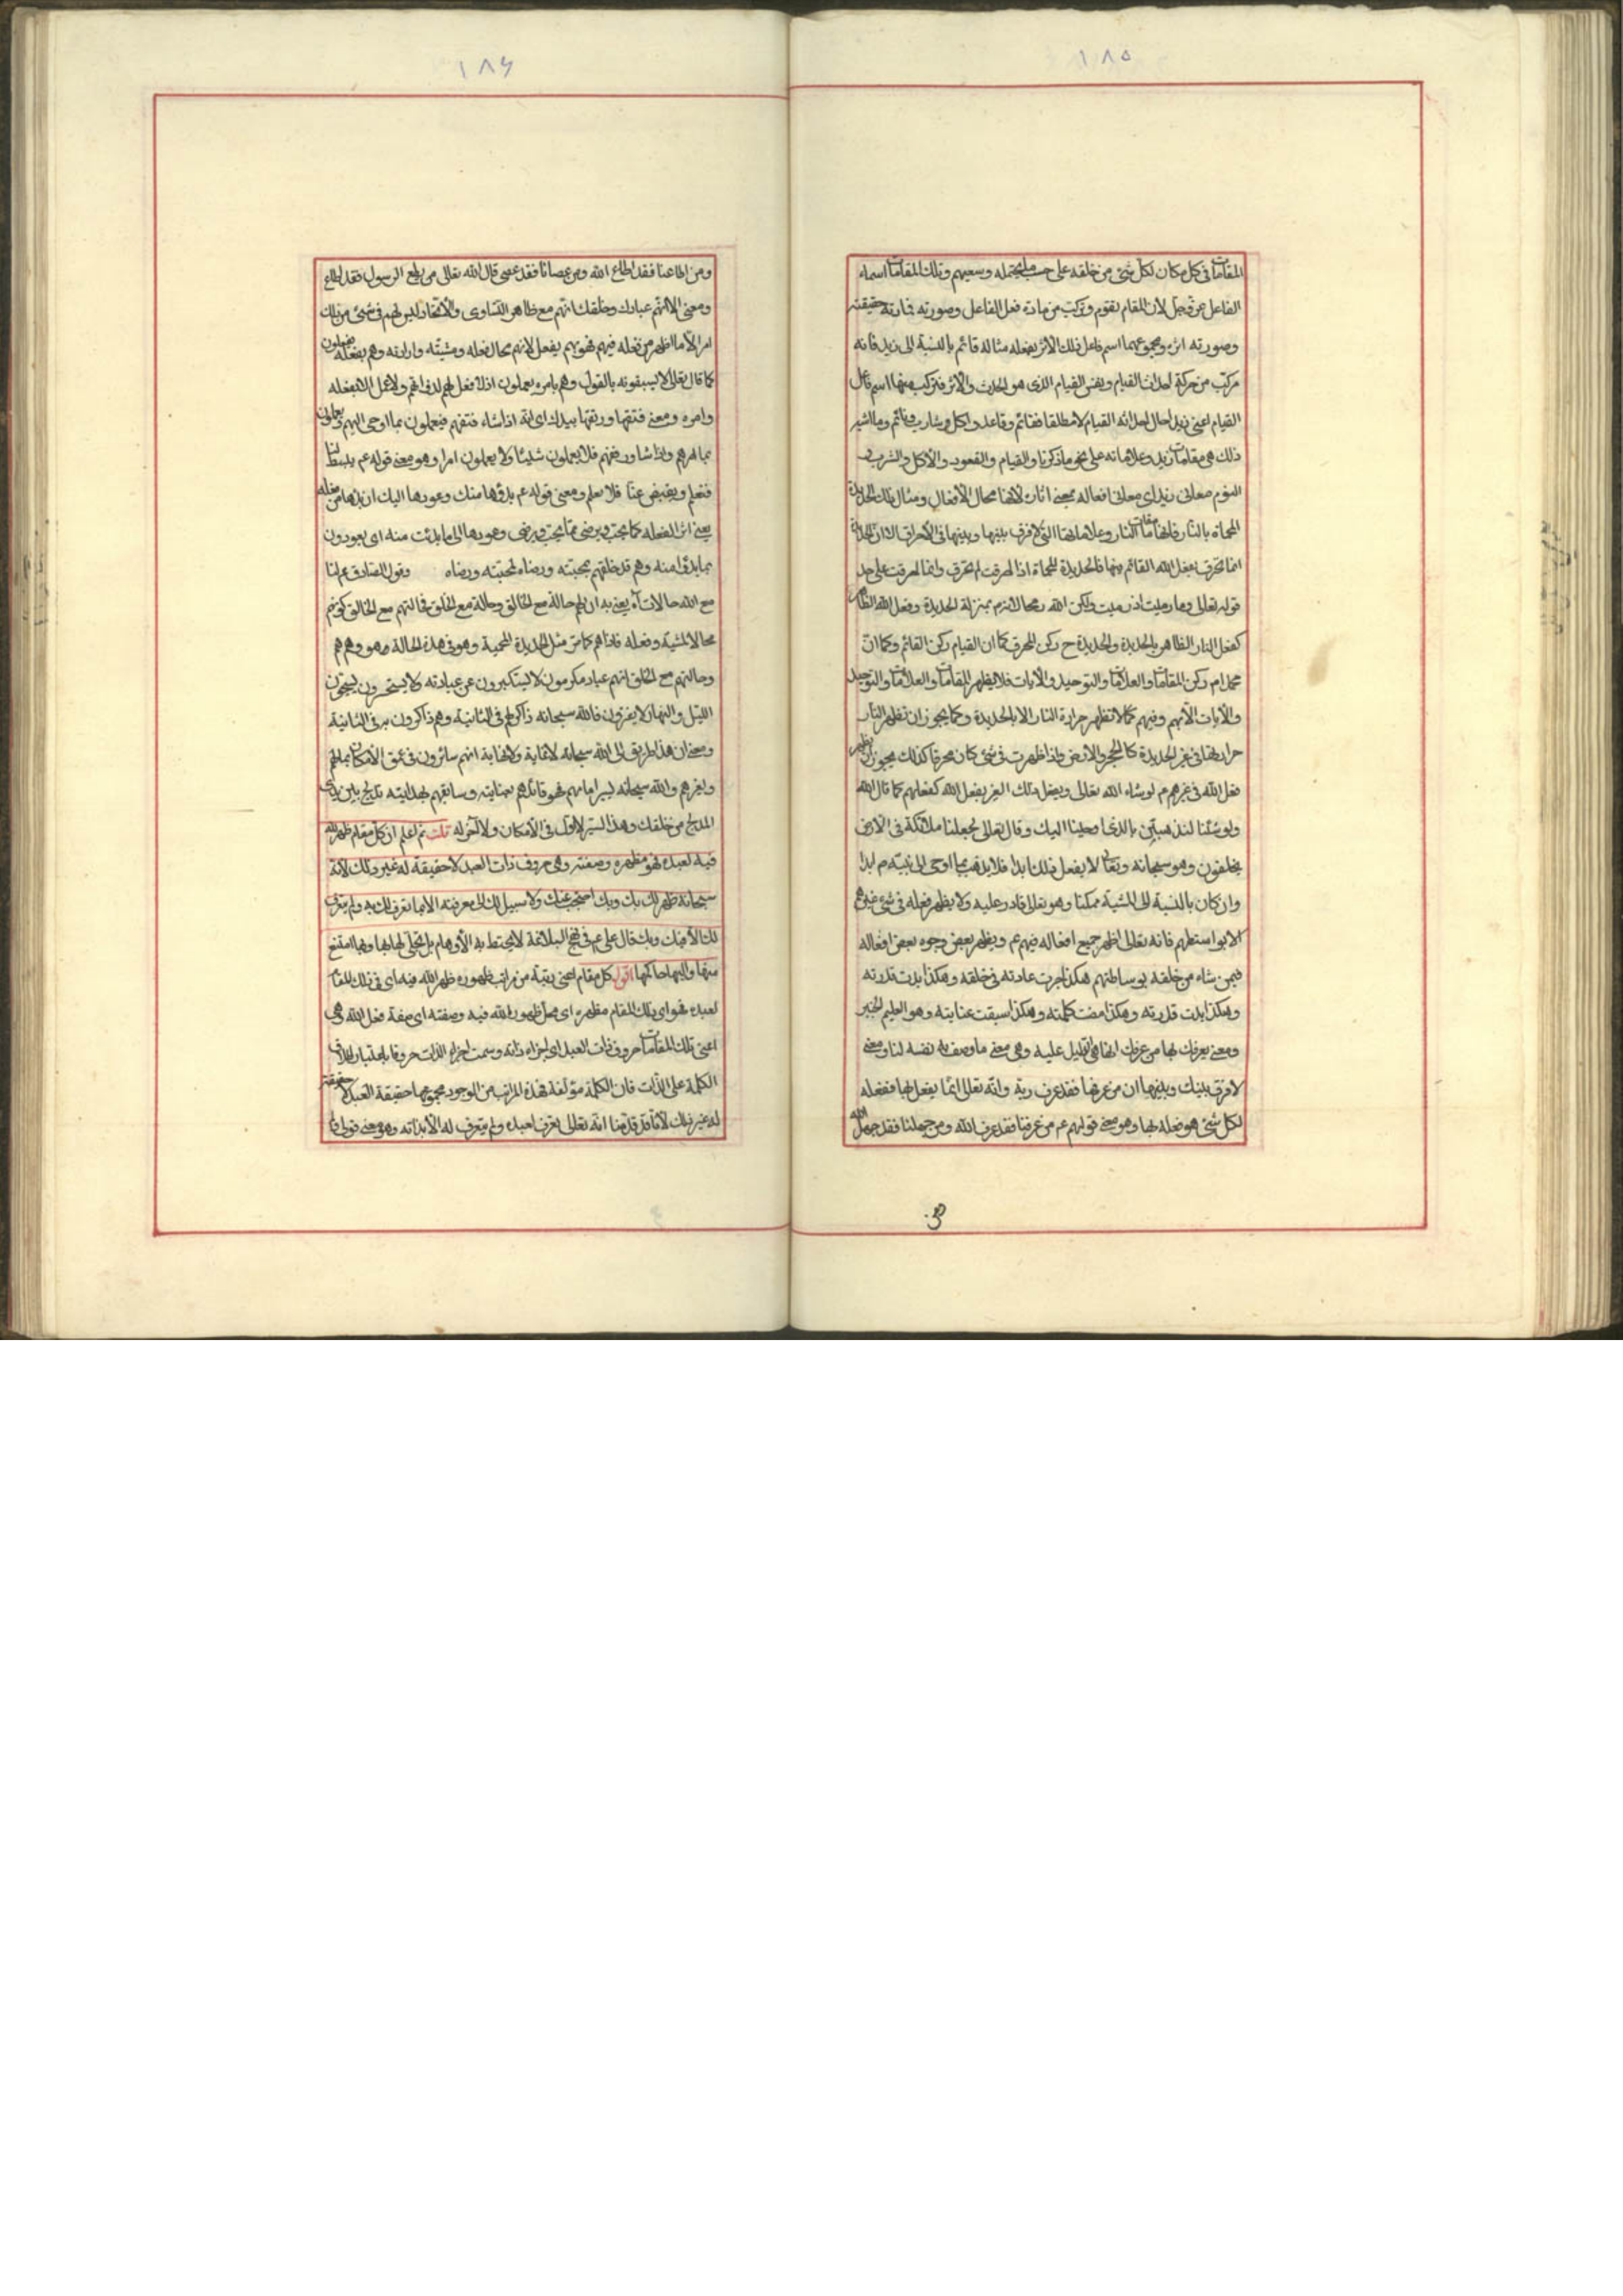 ١٨٥
المقامات في كل مكان لكل شئ من خلقه على حسب ما يحتمله وسعهم وتلك المقامات اسماء
الفاعل عز وجل لان المقام تقوم وتركب من مادة فعل الفاعل وصورته فمادته حقيقته
وصورته اثره ومجموعهما اسم فاعل ذلك الاثر بفعله مثاله قائم بالنسبة الى زيد فانه
مركب من حركة احداث القيام ونفس القيام الذى هو الحدث والاثر فتركب منهما اسم فاعل
القيام اعنى زيد حال احداثه القيام لا مطلقا فقائم وقاعد واكل وشارب ونائم وما اشبه
ذلك هي مقامات زيد وعلاماته على نحو ما ذكرنا والقيام والقعود والاكل والشرب و
النوم معانى زيد اى معانى افعاله بمعنى اثار لانها محال الافعال ومثال ذلك الحديدة
المحماة بالنار فانها مقامات النار وعلاماتها التى لا فرق بينها وبينها فى الاحراق الا ان الحديدة
انما تحرق بفعل الله القائم بها فالحديدة المحماة اذا احرقت لم تحرق وانما احرقت على حد
قوله تعالى وما رميت اذ رميت ولكن الله رمى لانهم بمنزلة الحديدة وفعل الله الظاهر
كفعل النار الظاهر بالحديدة والحديدة ح ركن المحرق كما ان القيام ركن القائم وكما ان
محمد ام ركن المقامات والعلامات والتوحيد والايات فلا يظهر المقامات والعلامات والتوحيد
والايات الا بهم وفيهم كما لا تظهر حرارة النار الا بالحديدة وكما يجوز ان تظهر النار
حرارتها فى غير الحديدة كالحجر والارض فاذا ظهرت فى شئ كان محرقا كذلك يجوز ان يظهر
فعل الله فى غيرهم م لو شاء الله تعالى ويفعل ذلك الغير بفعل الله كفعلهم كما قال الله
ولو شئنا لنذهبن بالذى اوحينا اليك وقال تعالى لجعلنا ملائكة فى الارض
يخلفون وهو سبحانه وتعالى لا يفعل ذلك ابدا فلا يذهب بما اوحى الى نبيه ص ابدا
وان كان بالنسبة الى المشية ممكنا وهو تعالى قادر عليه ولا يظهر فعله فى شئ غيرهم
الا بواسطتهم فانه تعالى اظهر جميع افعاله فيهم عم ويظهر بعض وجوه بعض افعاله
فيمن شاء من خلقه بوساطتهم هكذا جرت عادته فى خلقه وهكذا بدت قدرته
وهكذا بدت قدرته وهكذا مضت كلمته وهكذا سبقت عنايته وهو العليم الخبير
ومعنى يعرفك بها من عرفك انها هى الدليل عليه وهى معنى ما وصف به نفسه لنا ومعنى
لا فرق بينك وبينها ان من عرفها فقد عرف ربه وانه تعالى انما يفعل بها ففعله
لكل شئ هو فعله بها وهو معنى قولهم عم من عرفنا فقد عرف الله ومن جهلنا فقد جهل الله
١٨٦
ومن اطاعنا فقد اطاع الله ومن عصانا فقد عصى قال الله تعالى من يطع الرسول فقد اطاع
ومعنى الا انهم عبادك وخلقك انهم مع ظاهر التساوى والاتحاد ليس لهم فى شئ من ذلك
امر الا ما اظهر من فعله فيهم فهو بهم يفعل لانهم محال فعله ومشيته وارادته وهم بفعله يفعلون
كما قال تعالى لا يسبقونه بالقول وهم بامره يعملون اذ لا فعل لهم لذواتهم ولا عمل الا بفعله
وامره ومعنى فتقها ورتقها بيدك اى انه اذا شاء فتقهم فيعملون بما اوحى اليهم ويعملون
بما امرهم واذا شاء رتقهم فلا يعملون شيئا ولا يعملون امرا وهو معنى قوله عم يبسط لنا
فنعلم ويقبض عنا فلا نعلم ومعنى قوله عم بدؤها منك وعودها اليك ان بدءها من فعله
يعنى اثر لفعله كما يحب ويرضى مما يحب ويرضى وعودها الى ما بدئت منه اى يعودون
بما بدؤا منه وهم قد خلقهم بمحبته ورضاه لمحبته ورضاه وقول الصادق عم لنا
مع الله حالات آه يعنى به ان لهم حالة مع الخالق وحالة مع الخلق فحالتهم مع الخالق كونهم
محالا لمشيته وفعله فاذا هم كما مر مثل الحديدة المحمية وهو فى هذه الحالة هو وهم هم
وحالتهم مع الخلق انهم عباد مكرمون لا يستكبرون عن عبادته ولا يستحسرون يسبحون
الليل والنهار لا يفترون فالله سبحانه ذاكر لهم فى الثانية وهم ذاكرون به فى الثانية
ومعنى ان هذا طريق الى الله سبحانه لا غاية ولا نهاية انهم سائرون فى عمق الامكان بما لهم
وبغيرهم والله سبحانه يسير امامهم فهو قائدهم بعنايته وسائقهم بهدايته تدلج بين يدى
المدلج من خلقك وهذا السير لا اول فى الامكان ولا آخر له قلت ثم اعلم ان كل مقام ظهر الله
فيه لعبده فهو مظهره وصفته وهى حروف ذات العبد لا حقيقة له غير ذلك لانه
سبحانه ظهر لك بك وبك احتجب عنك ولا سبيل لك الى معرفته الا بما تعرف لك به ولم يتعرف
لك الا فيك وبك قال على عم فى نهج البلاغة لا يحيط به الاوهام بل تجلى لها بها وبها امتنع
منها واليها حاكمها اقول كل مقام اعنى رتبة من مراتب ظهوره ظهر الله فيه اى فى ذلك المقام
لعبده فهو اى ذلك المقام مظهره اى محل ظهور الله فيه وصفته اى صفة فعل الله وهى
اعنى تلك المقامات حروف ذات العبد اى اجزاء ذاته وسميت اجزاء الذات حروفا باعتبار اطلاق
الكلمة على الذات فان الكلمة مؤلفة فهذه المراتب من الوجود مجموعها حقيقة العبد لا حقيقة
له غير ذلك لانا قد قدمنا انه تعالى تعرف لعبده ولم يتعرف له الا بذاته وهو معنى قولى